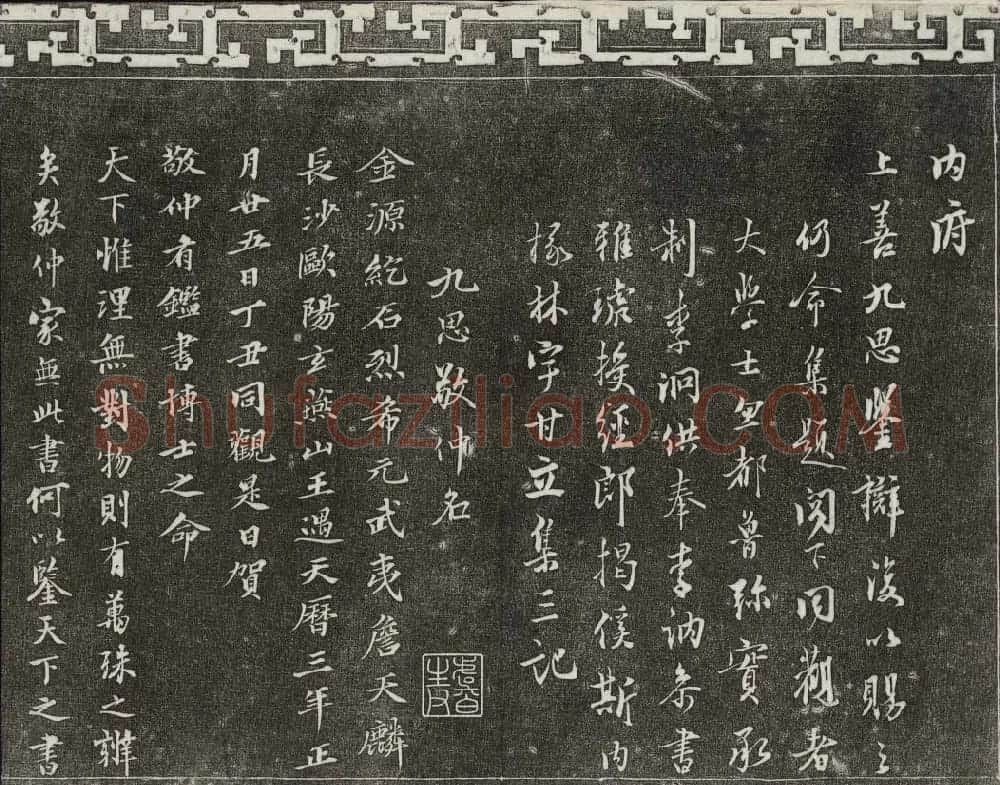 内府
上善九思鑒辯復以賜之
仍命集題閣下同觀者
大學士忽都魯弥實承
制李泂供奉李訥叅書
雅琥授經郎揭傒斯内
掾林宇甘立集三記
九思敬仲名
金源紇石烈希元武夷詹天麟
長沙歐陽玄燕山王遇天曆三年正
月廿五日丁丑同觀是日賀
敬仲有鑑書博士之命
天下惟理無對物則有萬殊之辨
矣敬仲家無此書何以鑒天下之書
Shufaziliao.COM